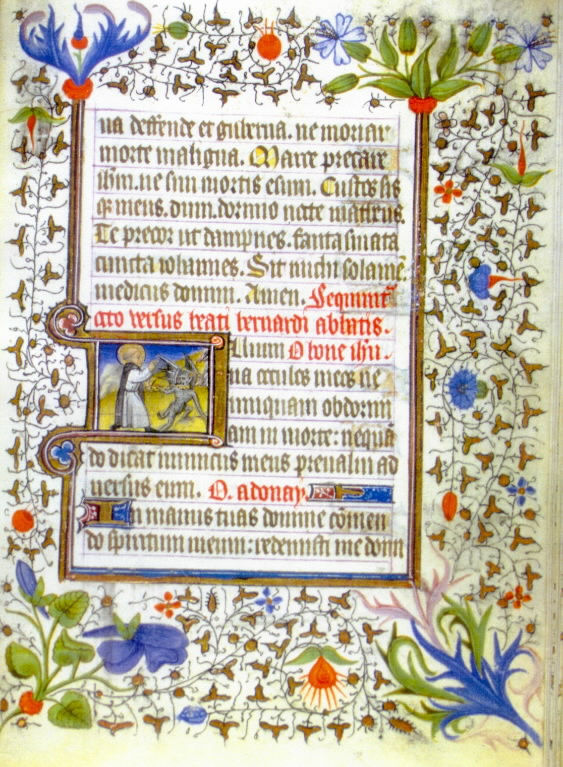 ua deffende et guberna. ne moriar
morte maligna. Marce precare
ihm. ne sim mortis
meus. dum. dormio nocte
Te precor ut dampnes. fantasmata
cuncta iohannes. Sit michi solame
medicus domini. Amen. Sequunt
octo versus beati bernardi abbatis.
Illum O bone ihu.
ua occulos meos ne
umquam obdormi
am in morte: nequa
do dicat inimicus meus preualui ad
versus eum. O. adonay.
In manus tuas domine commen
do spiritum meum: redemisti me domi